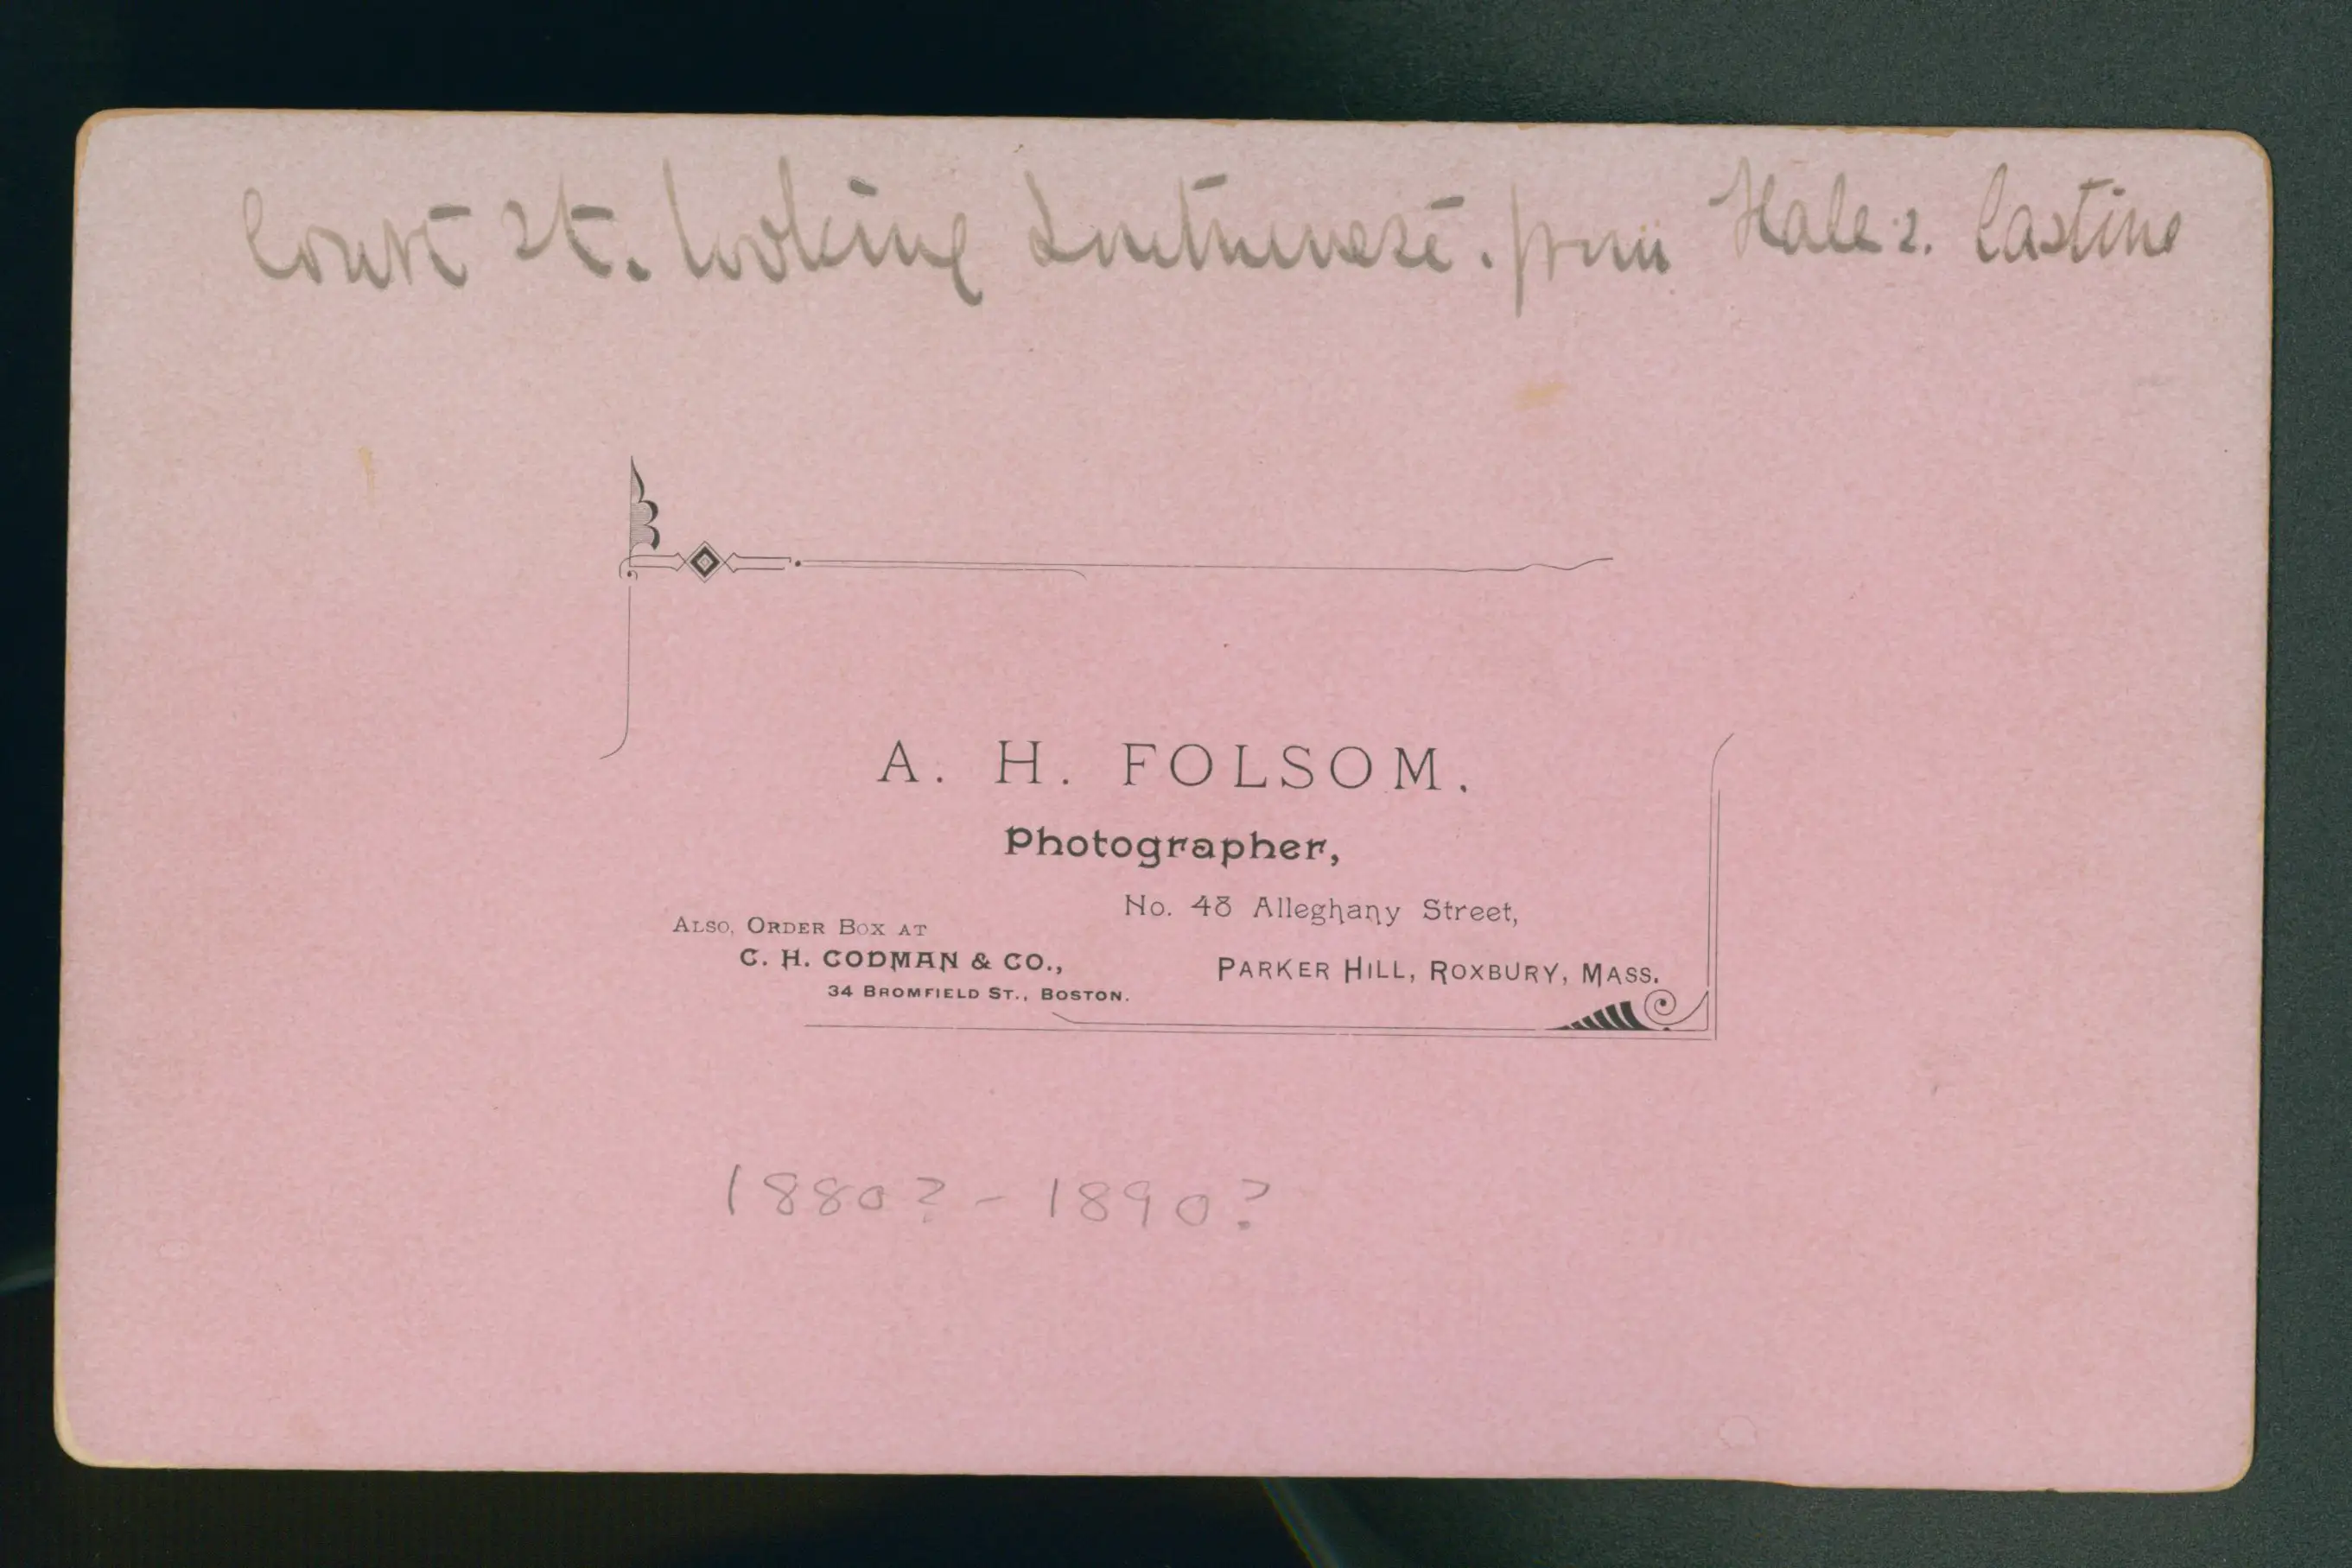 Court St. looking Southwest. from Hale's. Castine
A. H. FOLSOM.
Photographer,
No. 48 Alleghany Street,
PARKER HILL, ROXBURY, MASS.
ALSO, ORDER BOX AT
C. H. CODMAN & CO.,
34 BROMFIELD ST., BOSTON.
1880? - 1890?